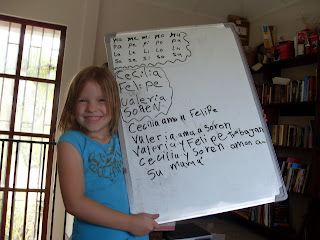 ma me mi mo mu
pa pe pi po pu
La Le Li Lo Lu
Sa se si so su
Cecilia
Felipe
valeria
SOREN
Cecilia ama a Felipe
Valeria ama a soren
Valeria y Felipe se bajan
Cecilia y Soren aman a
su mama